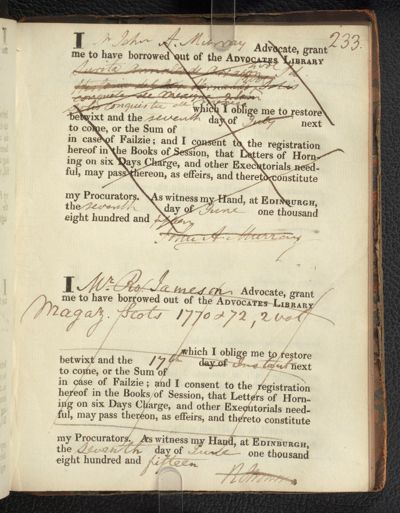 233.
I Mr John A. Murray Advocate, grant
me to have borrowed out of the ADVOCATES LIBRARY
conquista de
which I oblige me to restore
betwixt and the seventh day of July next
to come, or the Sum of
in case of Failzie; and I consent to the registration
hereof in the Books of Session, that Letters of Horn-
ing on six Days Charge, and other Executorials need-
ful, may pass thereon, as effeirs, and thereto constitute
my Procurators. As witness my Hand, at EDINBURGH,
the seventh day of June one thousand
eight hundred and
John A. Murray
I Mr Ro. Jameson Advocate, grant
me to have borrowed out of the ADVOCATES LIBRARY
Magaz. Scots 1770 & 72, 2 voll
which I oblige me to restore
betwixt and the 17th day of Instant next
to come, or the Sum of
in case of Failzie; and I consent to the registration
hereof in the Books of Session, that Letters of Horn-
ing on six Days Charge, and other Executorials need-
ful, may pass thereon, as effeirs, and thereto constitute
my Procurators. As witness my Hand, at EDINBURGH,
the seventh day of June one thousand
eight hundred and fifteen